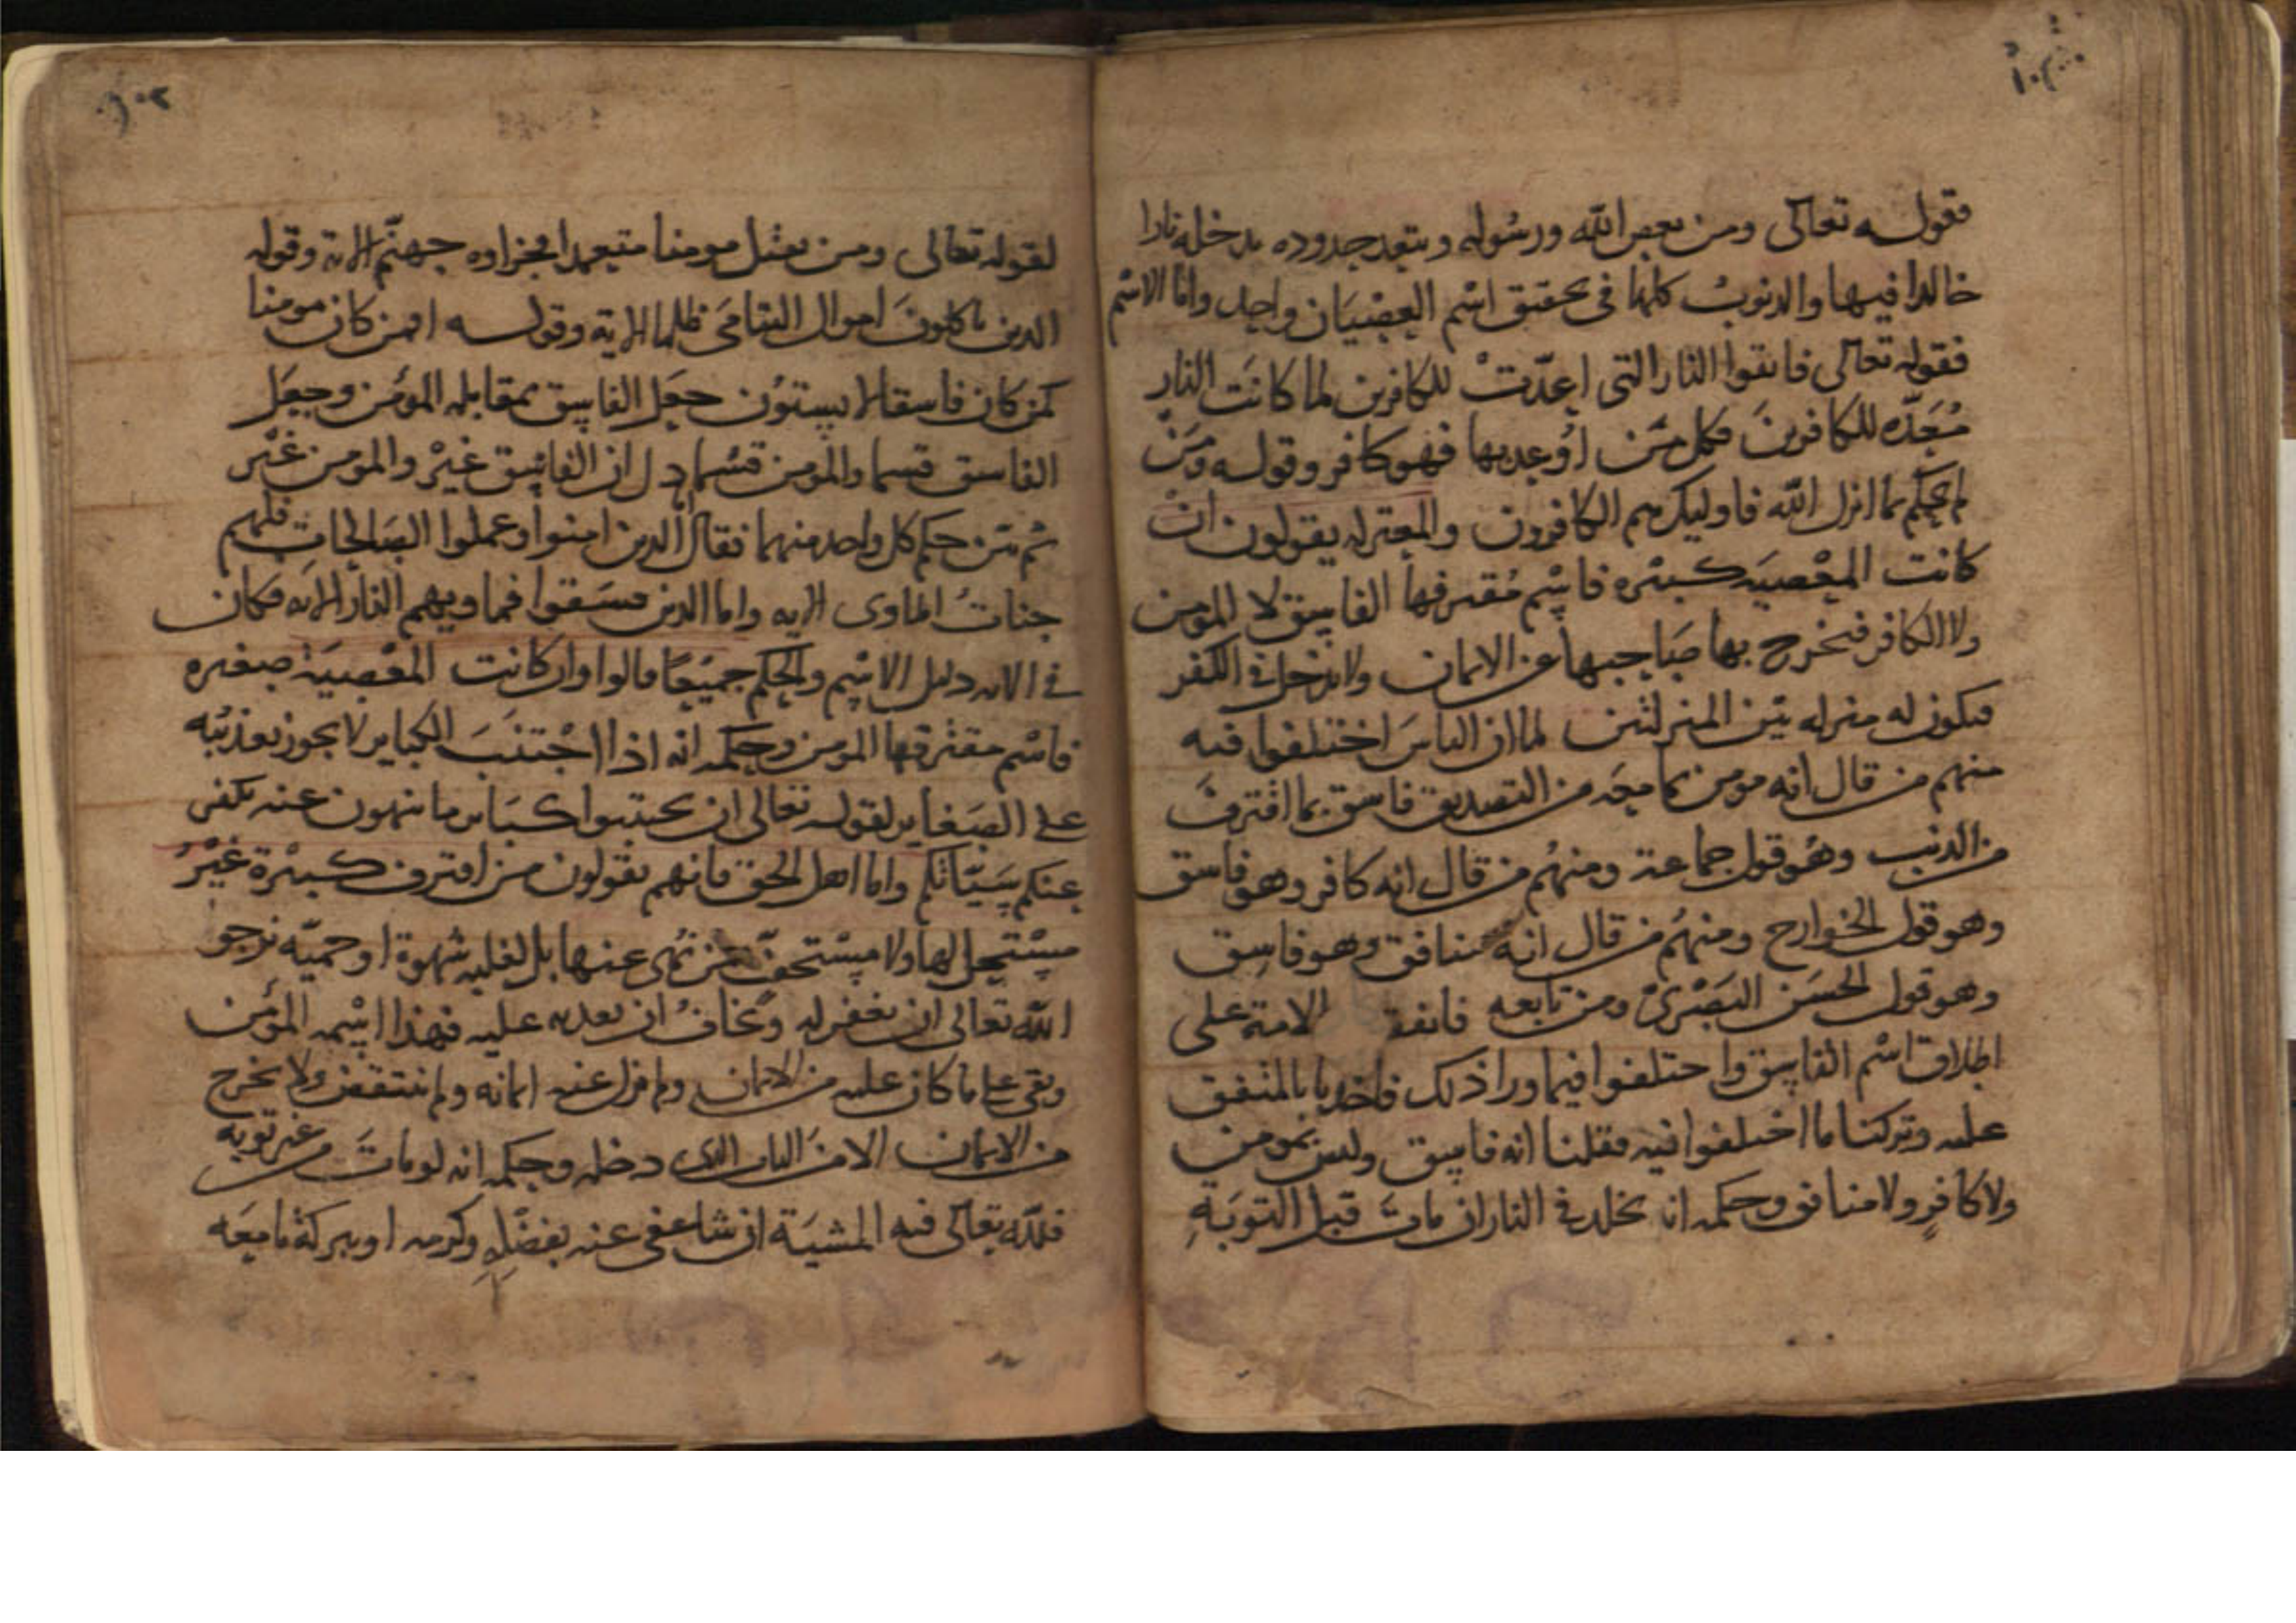 فقوله تعالى ومن يعص الله ورسوله ويتعد حدوده يدخله نارا
خالدا فيها والذنوب كلها في تحقيق اسْم العِصْيَان واحد واما الاسْم
فقوله تعالى فاتقوا النار التي اعدّتْ للكافرين لما كانَت النار
مُعَدّه للكافرينَ فكل مَن اُوعد بها فهو كافر وقوله ومَنْ
لم يحكم بما انزل الله فاوليك هم الكافرون والمعتزله يقولون ان
كانت المعْصيَه كبيْره فاسْم مُقترفها الفاسق لا المومن
ولا الكافر فيخرج بها صَاحبها عن الايمان ولا يدخل في الكفر
فيكون له منزله بَين المنزلتين لما ان الناسَ اختلفوا فيه
منهم من قال انه مومن بما معَه من التصديق فاسق بما اقترفَ
من الذنب وهُو قول جماعة ومنهُم من قال انه كافر وهو فاسق
وهو قول الخوارج ومنهُم من قال انهُ منافق وهو فاسِق
وهو قول الحسَن البَصْريّ ومن تابعه فاتفقـ الامة على
اطلاق اسْم الفاسِق واختلفوا فيما ورا ذلك فاخذنا بالمتفق
عليه وتركنا ما اختلفوا فيه فقلنا انه فاسِق وليس بمومن
ولا كافرٍ ولا منافق وحكمه انه يخلد في النار ان ماتَ قبل التوبَةِ
١٠٢
لقوله تعالى ومن يقتل مومنا متعمدا فجزاوه جهنّم الاية وقوله
الذين ياكلونَ اموال اليتامَى ظلما الاية وقوله افمن كان مومنا
كمن كان فاسقا لا يستوُن جعَل الفاسِق بمقابله المؤمن وجعَل
الفاسق قسما والمومن قسْما دل ان الفاسِق غيْر والمومن غيْر
ثم بَين حكم كل واحد منهما فقال اما الذين امنوا وعملوا الصَالحات فلهم
جناتُ الماوى الايه واما الذين فسَقوا فماويهم النار الايه فكان
في الايه دليل الاسْم والحكم جميْعًا قالوا وان كانت المعْصيَة صغيره
فاسْم مقترفها المومن وحكمه انه اذا اجْتنَبَ الكباير لا يجوز تعذيْبه
على الصَغاير لقوله تعالى ان تجتنبوا كبَاير ما تنهون عنه نكفر
عنكم سَيّاتكم واما اهل الحق فانهم يقولون من اقترف كبيْرة غيْرُ
مسْتحل لها ولا مسْتخفّ بمن نهى عنها بل لغلبه شهوة او حميّه نرجو
الله تعالى ان يغفر له ونخافُ ان يعذبه عليه فهذا اسْمه المؤمن
وبقى على ما كان عليه من الايمان ولم يزل عنه ايمانه ولم ينتقض ولا يخرج
من الايمان الا من الباب الذي دخله وحكمه انه لو ماتَ من غير توبه
فلله تعالى فيه المشيَة ان شا عفى عنه بفضْلهِ وكرمه او ببركة ما معَه